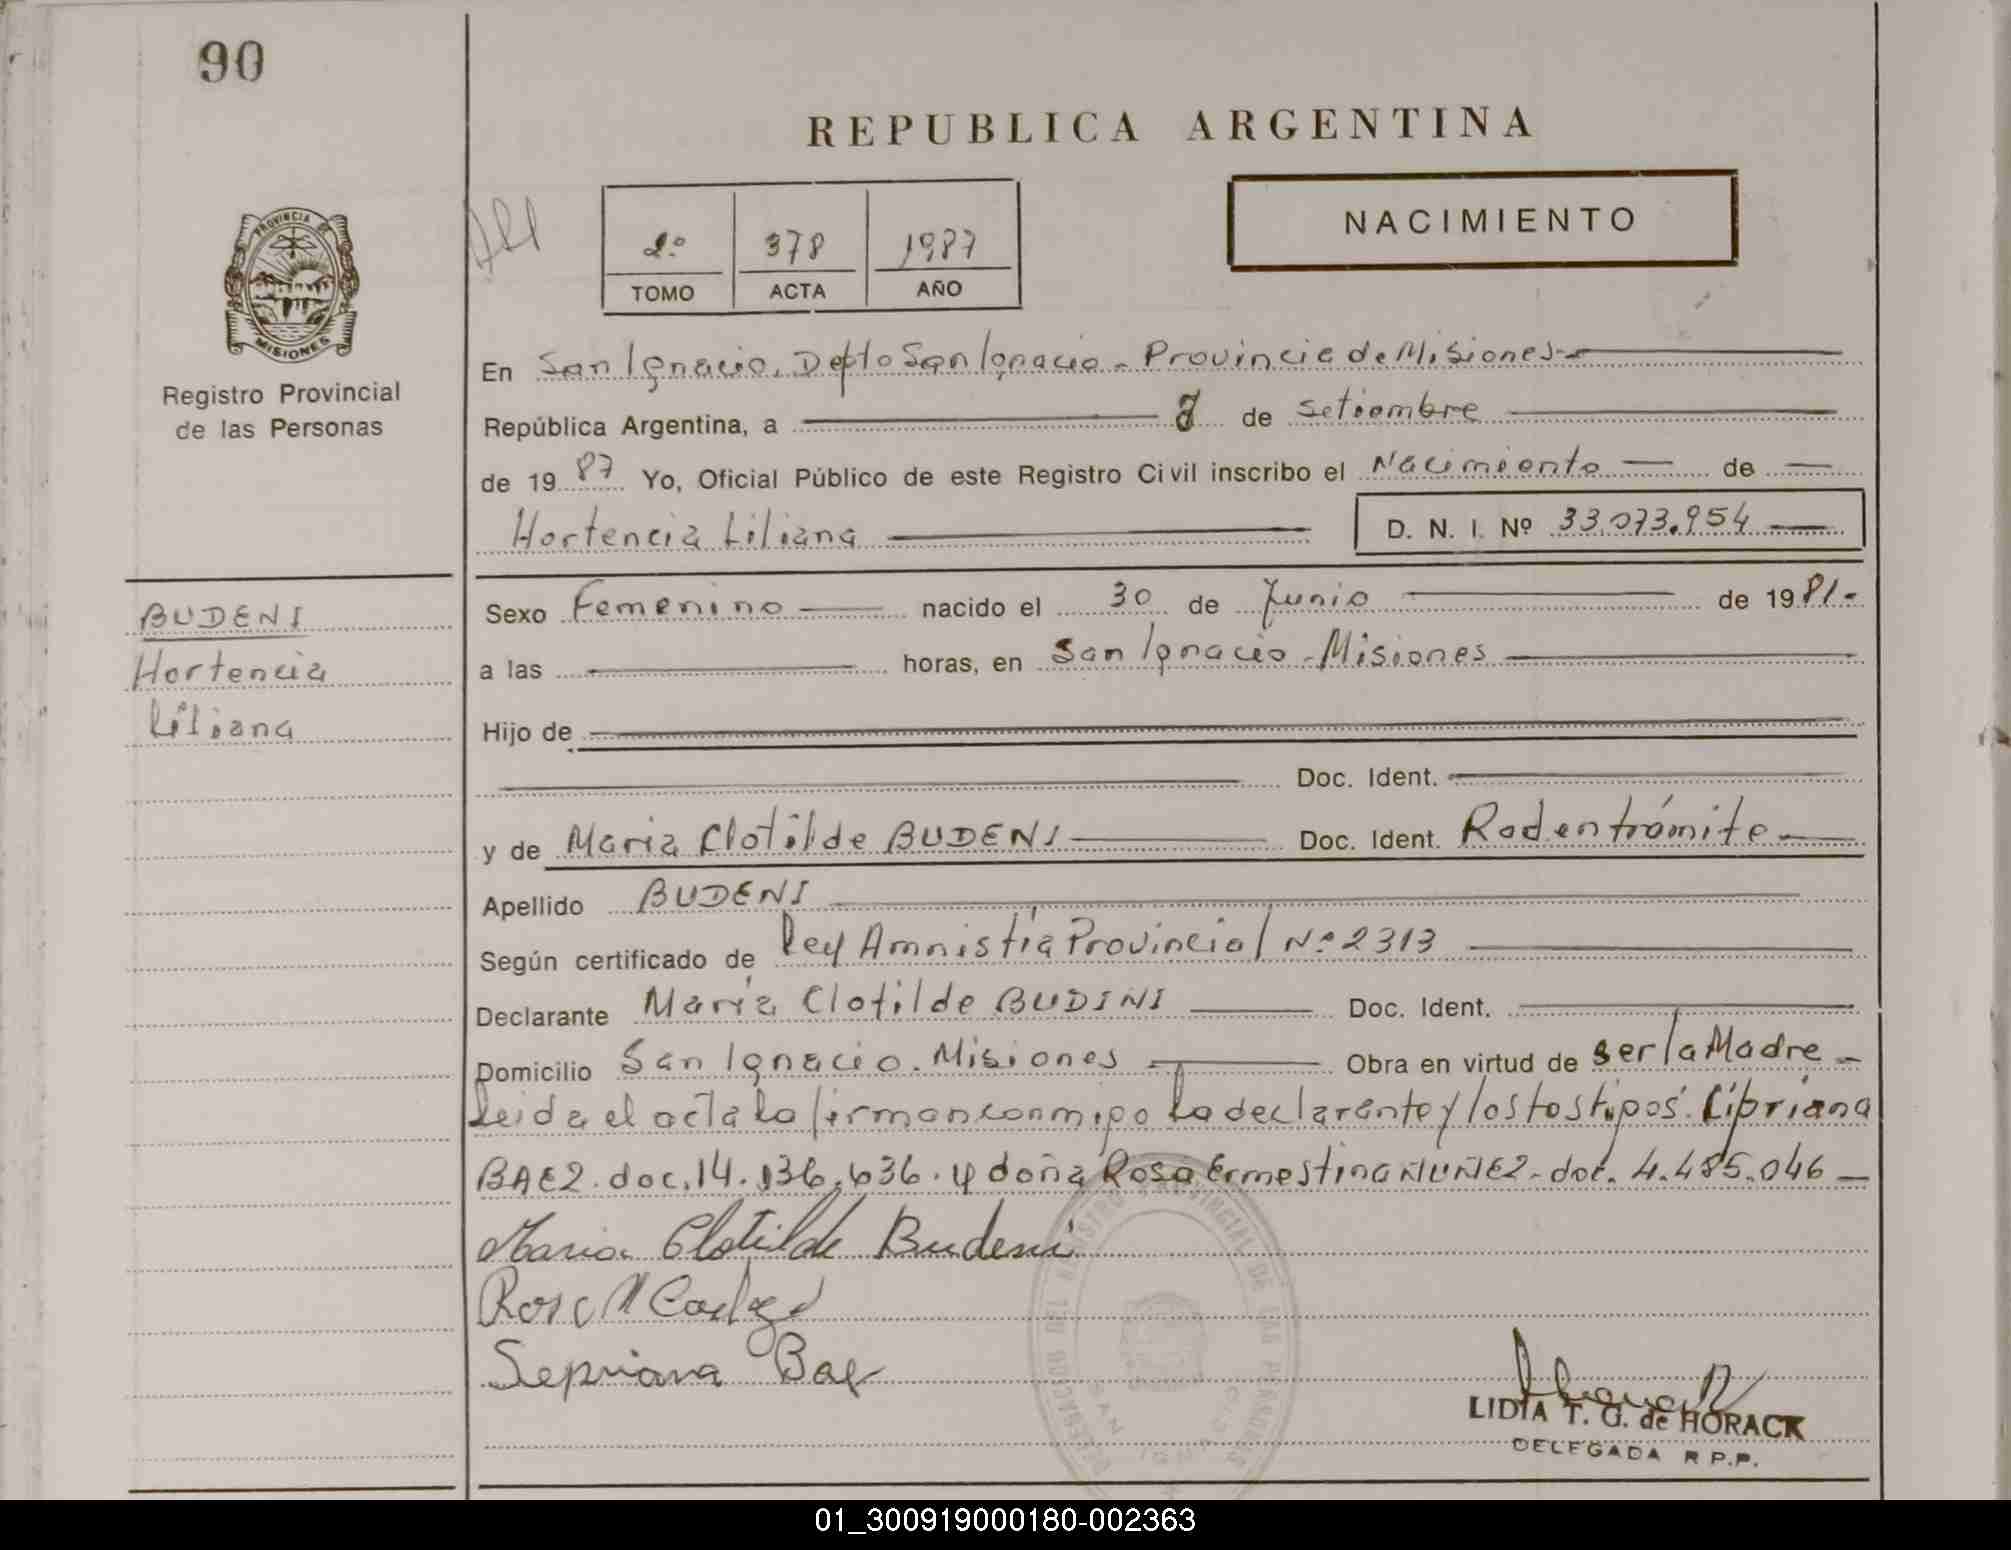 90
REPUBLICA ARGENTINA
PROVINCIA DE
MISIONES
Registro Provincial
de las Personas
2º 378 1987
TOMO ACTA AÑO
NACIMIENTO
En San Ignacio, Depto San Ignacio - Provincia de Misiones
República Argentina, a de Setiembre
de 1987 Yo, Oficial Público de este Registro Civil inscribo el Nacimiento de
Hortencia Liliana D. N. I. Nº 33.073.954
BUDENI
Hortencia
Liliana
Sexo Femenino nacido el 30 de Junio de 1981.-
a las horas, en San Ignacio - Misiones
Hijo de
Doc. Ident.
y de Maria Clotilde BUDENI Doc. Ident. Rad en trámite
Apellido BUDENI
Según certificado de Ley Amnistía Provincial Nº 2313
Declarante María Clotilde BUDINI Doc. Ident.
Domicilio San Ignacio. Misiones Obra en virtud de ser la Madre
Leida el acta la firman conmigo la declarante y los tostigos: Cipriana
BAEZ. doc. 14.136.636. y doña Rosa Ermestina NUÑEZ - doc. 4.485.046
Maria Clotilde Budeni
Rosa N
Sepriana Bae
LIDIA T. G. de HORACK
DELEGADA R P.P.
01_300919000180-002363